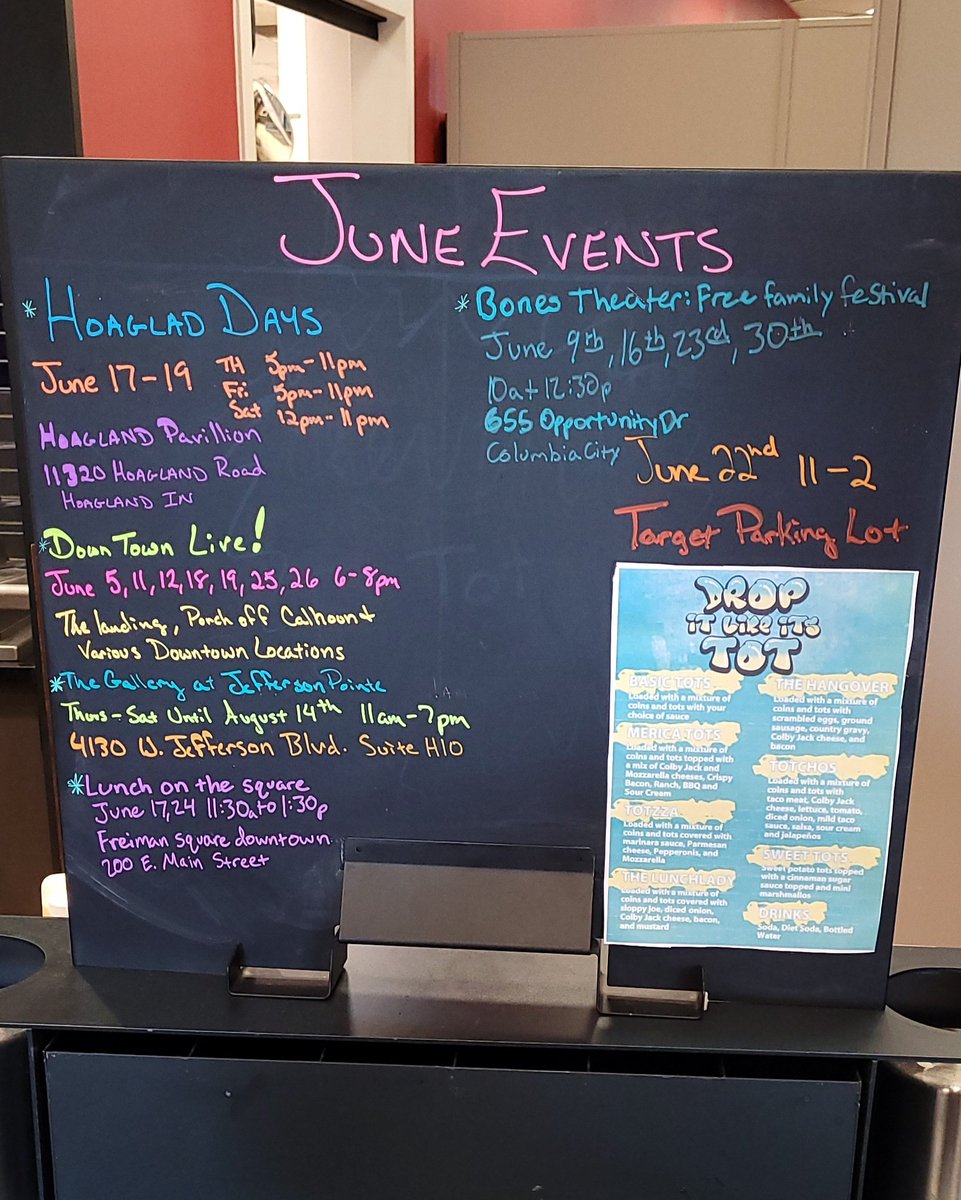 JUNE EVENTS
*HOAGLAD DAYS
June 17-19 TH 5pm-11pm
Fri. 5pm-11pm
Sat 12pm-11pm
HOAGLAND Pavillion
11320 HOAGLAND Road
HOAGLAND IN
*Down Town Live!
June 5, 11, 12, 18, 19, 25, 26 6-8pm
The landing, Porch off Calhoun +
Various Downtown Locations
*The Gallery at Jefferson Pointe
Thurs-Sat Until August 14th 11am-7pm
4130 W. Jefferson Blvd. Suite H10
*Lunch on the square
June 17, 24 11:30a to 1:30p
Freiman square downtown
200 E. Main Street
*Bones Theater: Free family festival
June 9th, 16th, 23rd, 30th
10a + 12:30p
655 Opportunity Dr
Columbia City
June 22nd 11-2
Target Parking Lot
DROP
it Like its
TOT
BASIC TOTS
Loaded with a mixture of
coins and tots with your
choice of sauce
MERICA TOTS
Loaded with a mixture of
coins and tots topped with
a mix of Colby Jack and
Mozzarella cheeses, Crispy
Bacon, Ranch, BBQ and
Sour Cream
TOTZZA
Loaded with a mixture of
coins and tots covered with
marinara sauce, Parmesan
cheese, Pepperonis, and
Mozzarella
THE LUNCHLADY
Loaded with a mixture of
coins and tots covered with
sloppy joe, diced onion,
Colby Jack cheese, bacon,
and mustard
THE HANGOVER
Loaded with a mixture of
coins and tots with
scrambled eggs, ground
sausage, country gravy,
Colby Jack cheese, and
bacon
TOTCHOS
Loaded with a mixture of
coins and tots with
taco meat, Colby Jack
cheese, lettuce, tomato,
diced onion, mild taco
sauce, salsa, sour cream
and jalapeños
SWEET TOTS
Sweet potato tots topped
with a cinnaman sugar
sauce topped and mini
marshmallos
DRINKS
Soda, Diet Soda, Bottled
Water